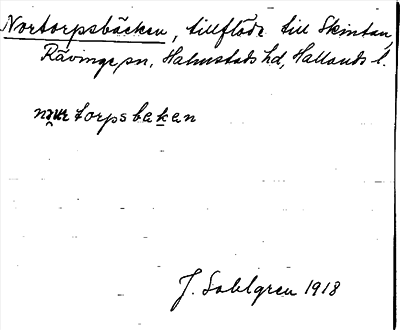 Nortorpsbäcken, tillflöde till Skintan,
Rävinge sn, Halmstads hd, Hallands l.
torpsbekan
J. Sahlgren 1918